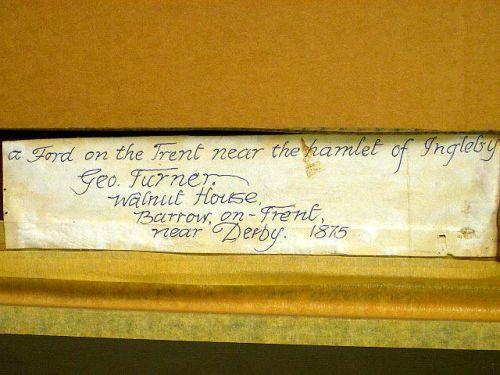 a Ford on the Trent near the hamlet of Ingleby
Geo. Turner.
Walnut House,
Barrow, on-Trent,
near Derby. 1875